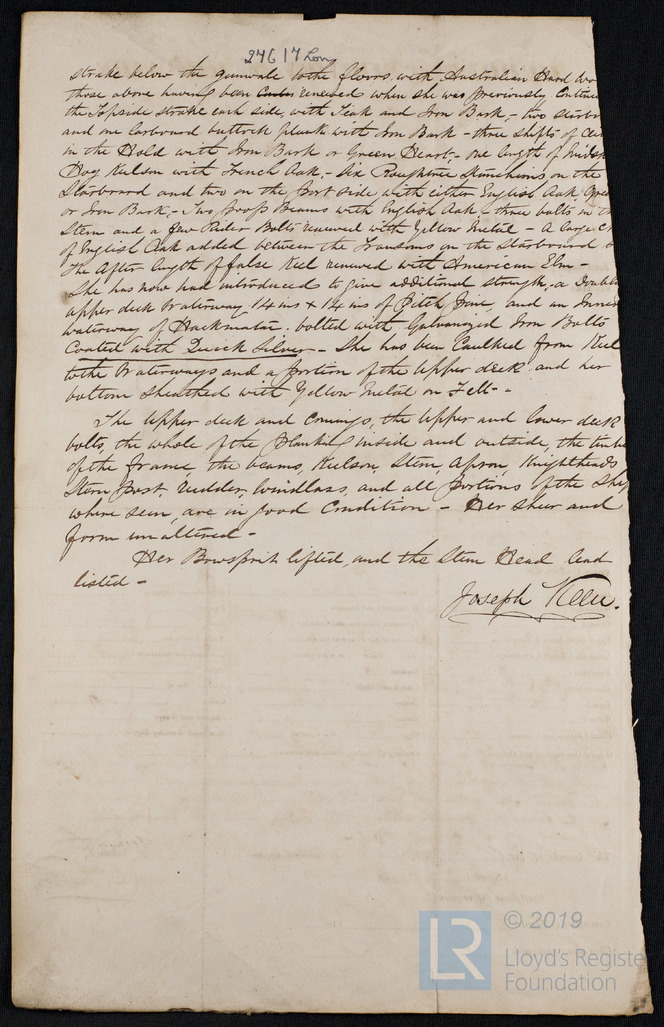 24617 Lon
strake below the gunwale to the floors with Australian Hard Wo
those above having been renewed when she was previously
the Topside strake each side, with Teak and Iron Bark, - two starbo
and one Larboard buttock plank with Iron Bark - three shifts of
in the Hold with Iron Bark or Green Heart, - one length of Midsh
Hog Kelson with French Oak, - six Roughtree Stanchions on the
Starboard and two on the Port side with either English Oak,
or Iron Bark, - Two poop Beams with English Oak, three bolts in th
Stem and a few Rider Bolts renewed with Yellow Metal - A large
of English Oak added between the Transoms on the Starboard
The After length of false Keel renewed with American Elm -
She has now had introduced to give additional strength, a Double
upper deck Waterway 14 ins x 14 ins of Pitch Pine, and an Inner
waterway of Hackmatac bolted with Galvanized Iron Bolts
Coated with Quick Silver - She has been Caulked from Keel
to the Waterways and a portion of the Upper deck and her
bottom Sheathed with Yellow Metal on Felt -
The Upper deck and Comings, the Upper and lower deck
bolts, the whole of the Planking inside and outside, the timbe
of the frame the beams, Keelson, Stem, Apron, Knightheads
Stern Post, Rudder, Windlass, and all portions of the Ship
where seen, are in good Condition - Her Sheer and
form unaltered -
Her Bowsprit lifted, and the Stem Head
listed -
Joseph
LR
© 2019
Lloyd's Registe
Foundation